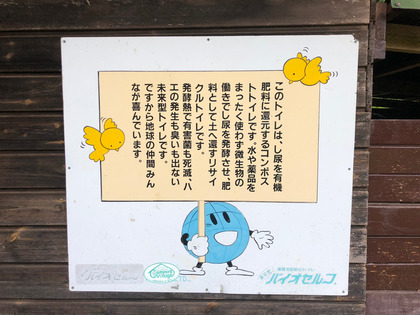 このトイレは、し尿を有機
肥料に還元するコンポス
トトイレです。水や薬品を
まったく使わず微生物の
働きでし尿を発酵させ、肥
料として土へ還すリサイ
クルトイレです。
発酵熱で有害菌も死滅、ハ
エの発生も臭いも出ない
未来型トイレです。
ですから地球の仲間みん
なが喜んでいます。
バイオセルフ
バイオセルフ